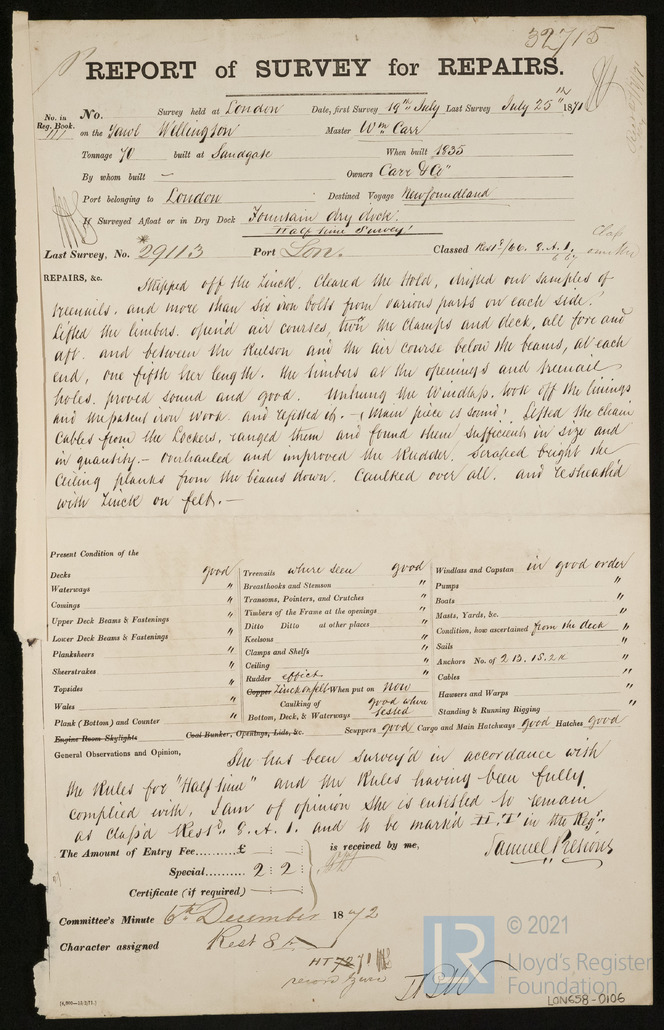 32715
REPORT of SURVEY for REPAIRS.
No. in Reg. Book. No. Survey held at London Date, first Survey 19th July Last Survey July 25th 1871
on the Yawl Wellington Master Wm Carr
Tonnage 70 built at Sandgate When built 1835
By whom built — Owners Carr & Co
Port belonging to London Destined Voyage Newfoundland
If Surveyed Afloat or in Dry Dock Fountain dry dock.
Half time Survey!
Last Survey, No. 29113 Port Lon. Classed Restd/66. 8. A. 1.
REPAIRS, &c. Stripped off the Zinck. Cleared the Hold, drifted out samples of
treenails. and more than six iron bolts from various parts on each side.
Lifted the limbers. open'd air courses, twn the clamps and deck, all fore and
aft. and between the Keelson and the air course below the beams, at each
end, one fifth her length. the timbers at the openings and treenail
holes. proved sound and good. Unhung the Windlass. took off the linings
and the patent iron work. and refitted it. — (Main piece is sound! Lifted the chain
Cables from the Lockers. ranged them and found them sufficient in size and
in quantity. — Overhauled and improved the Rudder. Scraped bright the
Ceiling planks from the beams down. Caulked over all. and resheath'd
with Zinck on felt. —
Present Condition of the
Decks good Treenails where seen good Windlass and Capstan in good order
Waterways " Breasthooks and Stemson " Pumps "
Comings " Transoms, Pointers, and Crutches " Boats "
Upper Deck Beams & Fastenings " Timbers of the Frame at the openings " Masts, Yards, &c. "
Lower Deck Beams & Fastenings " Ditto Ditto at other places " Condition, how ascertained from the deck "
Planksheers " Keelsons " Sails "
Sheerstrakes " Clamps and Shelfs " Anchors No. of 2 B. 1S. 2K "
Topsides " Ceiling " Cables "
Wales " Rudder effict " Hawsers and Warps "
Plank (Bottom) and Counter " Copper Zinck on felt When put on Now Standing & Running Rigging "
Caulking of Bottom, Deck, & Waterways good where tested
Engine Room Skylights Coal Bunker, Openings, Lids, &c. Scuppers good Cargo and Main Hatchways good Hatches good
General Observations and Opinion, She has been survey'd in accordance with
the Rules for "Half time" and the Rules having been fully
complied with. I am of opinion she is entitled to remain
as class'd Restd. 8. A. 1. and to be mark'd "H.T" in the Regr.
The Amount of Entry Fee.........£ is received by me,
Special.......... 2 2
Certificate (if required)
Committee's Minute 6th December 1872
Character assigned Rest 8
HT 72 71
© 2021
LR
Lloyd's Register
Foundation
LON658-0106